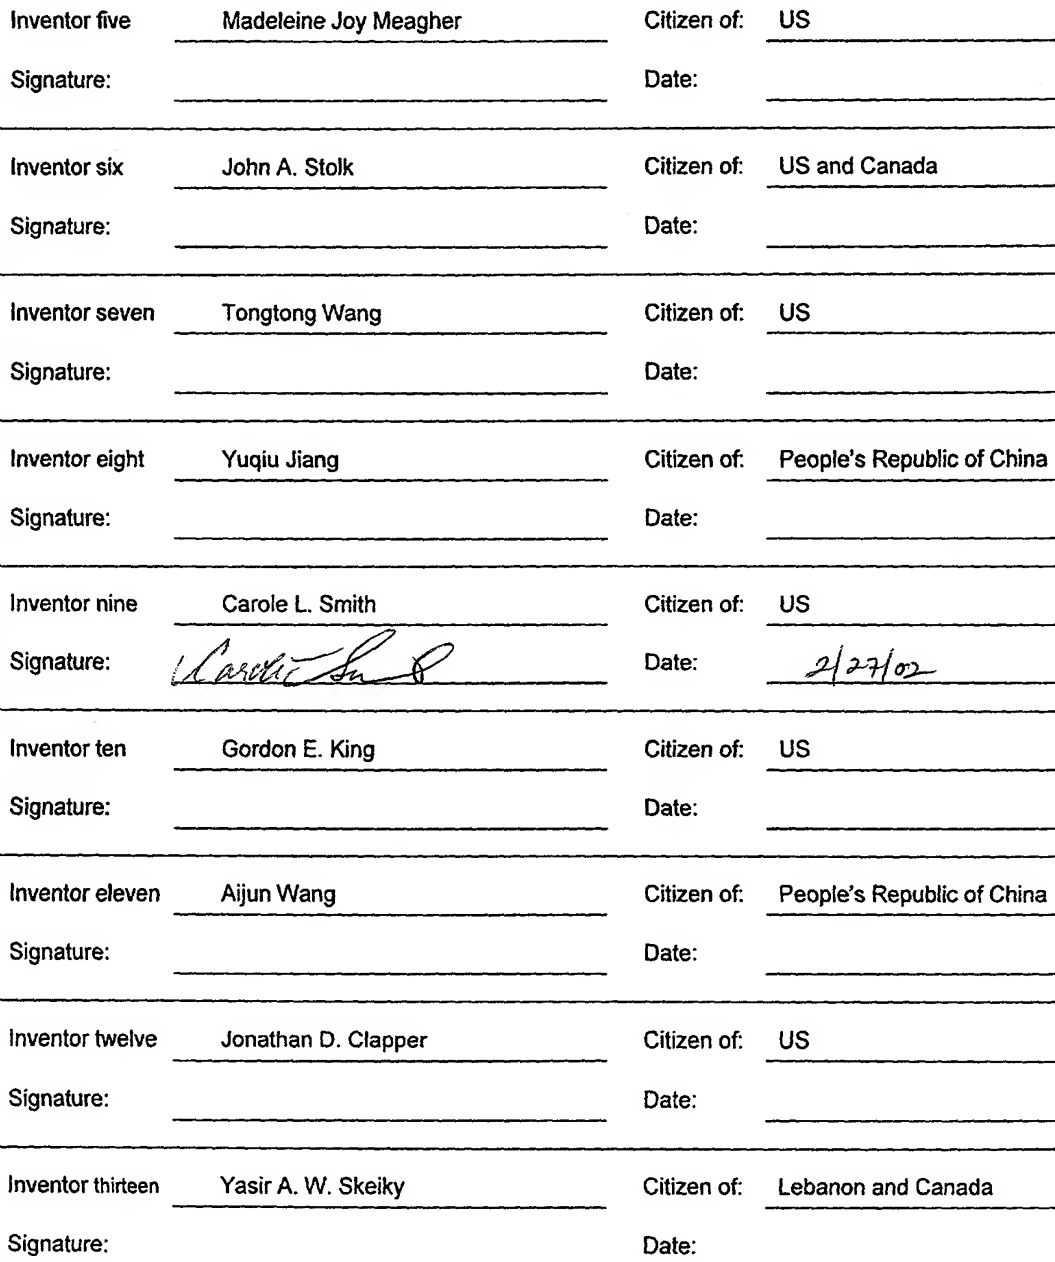 Inventor five Madeleine Joy Meagher Citizen of: US
Signature: Date:
Inventor six John A. Stolk Citizen of: US and Canada
Signature: Date:
Inventor seven Tongtong Wang Citizen of: US
Signature: Date:
Inventor eight Yuqiu Jiang Citizen of: People's Republic of China
Signature: Date:
Inventor nine Carole L. Smith Citizen of: US
Signature: Carole Smith Date: 2/27/02
Inventor ten Gordon E. King Citizen of: US
Signature: Date:
Inventor eleven Aijun Wang Citizen of: People's Republic of China
Signature: Date:
Inventor twelve Jonathan D. Clapper Citizen of: US
Signature: Date:
Inventor thirteen Yasir A. W. Skeiky Citizen of: Lebanon and Canada
Signature: Date: